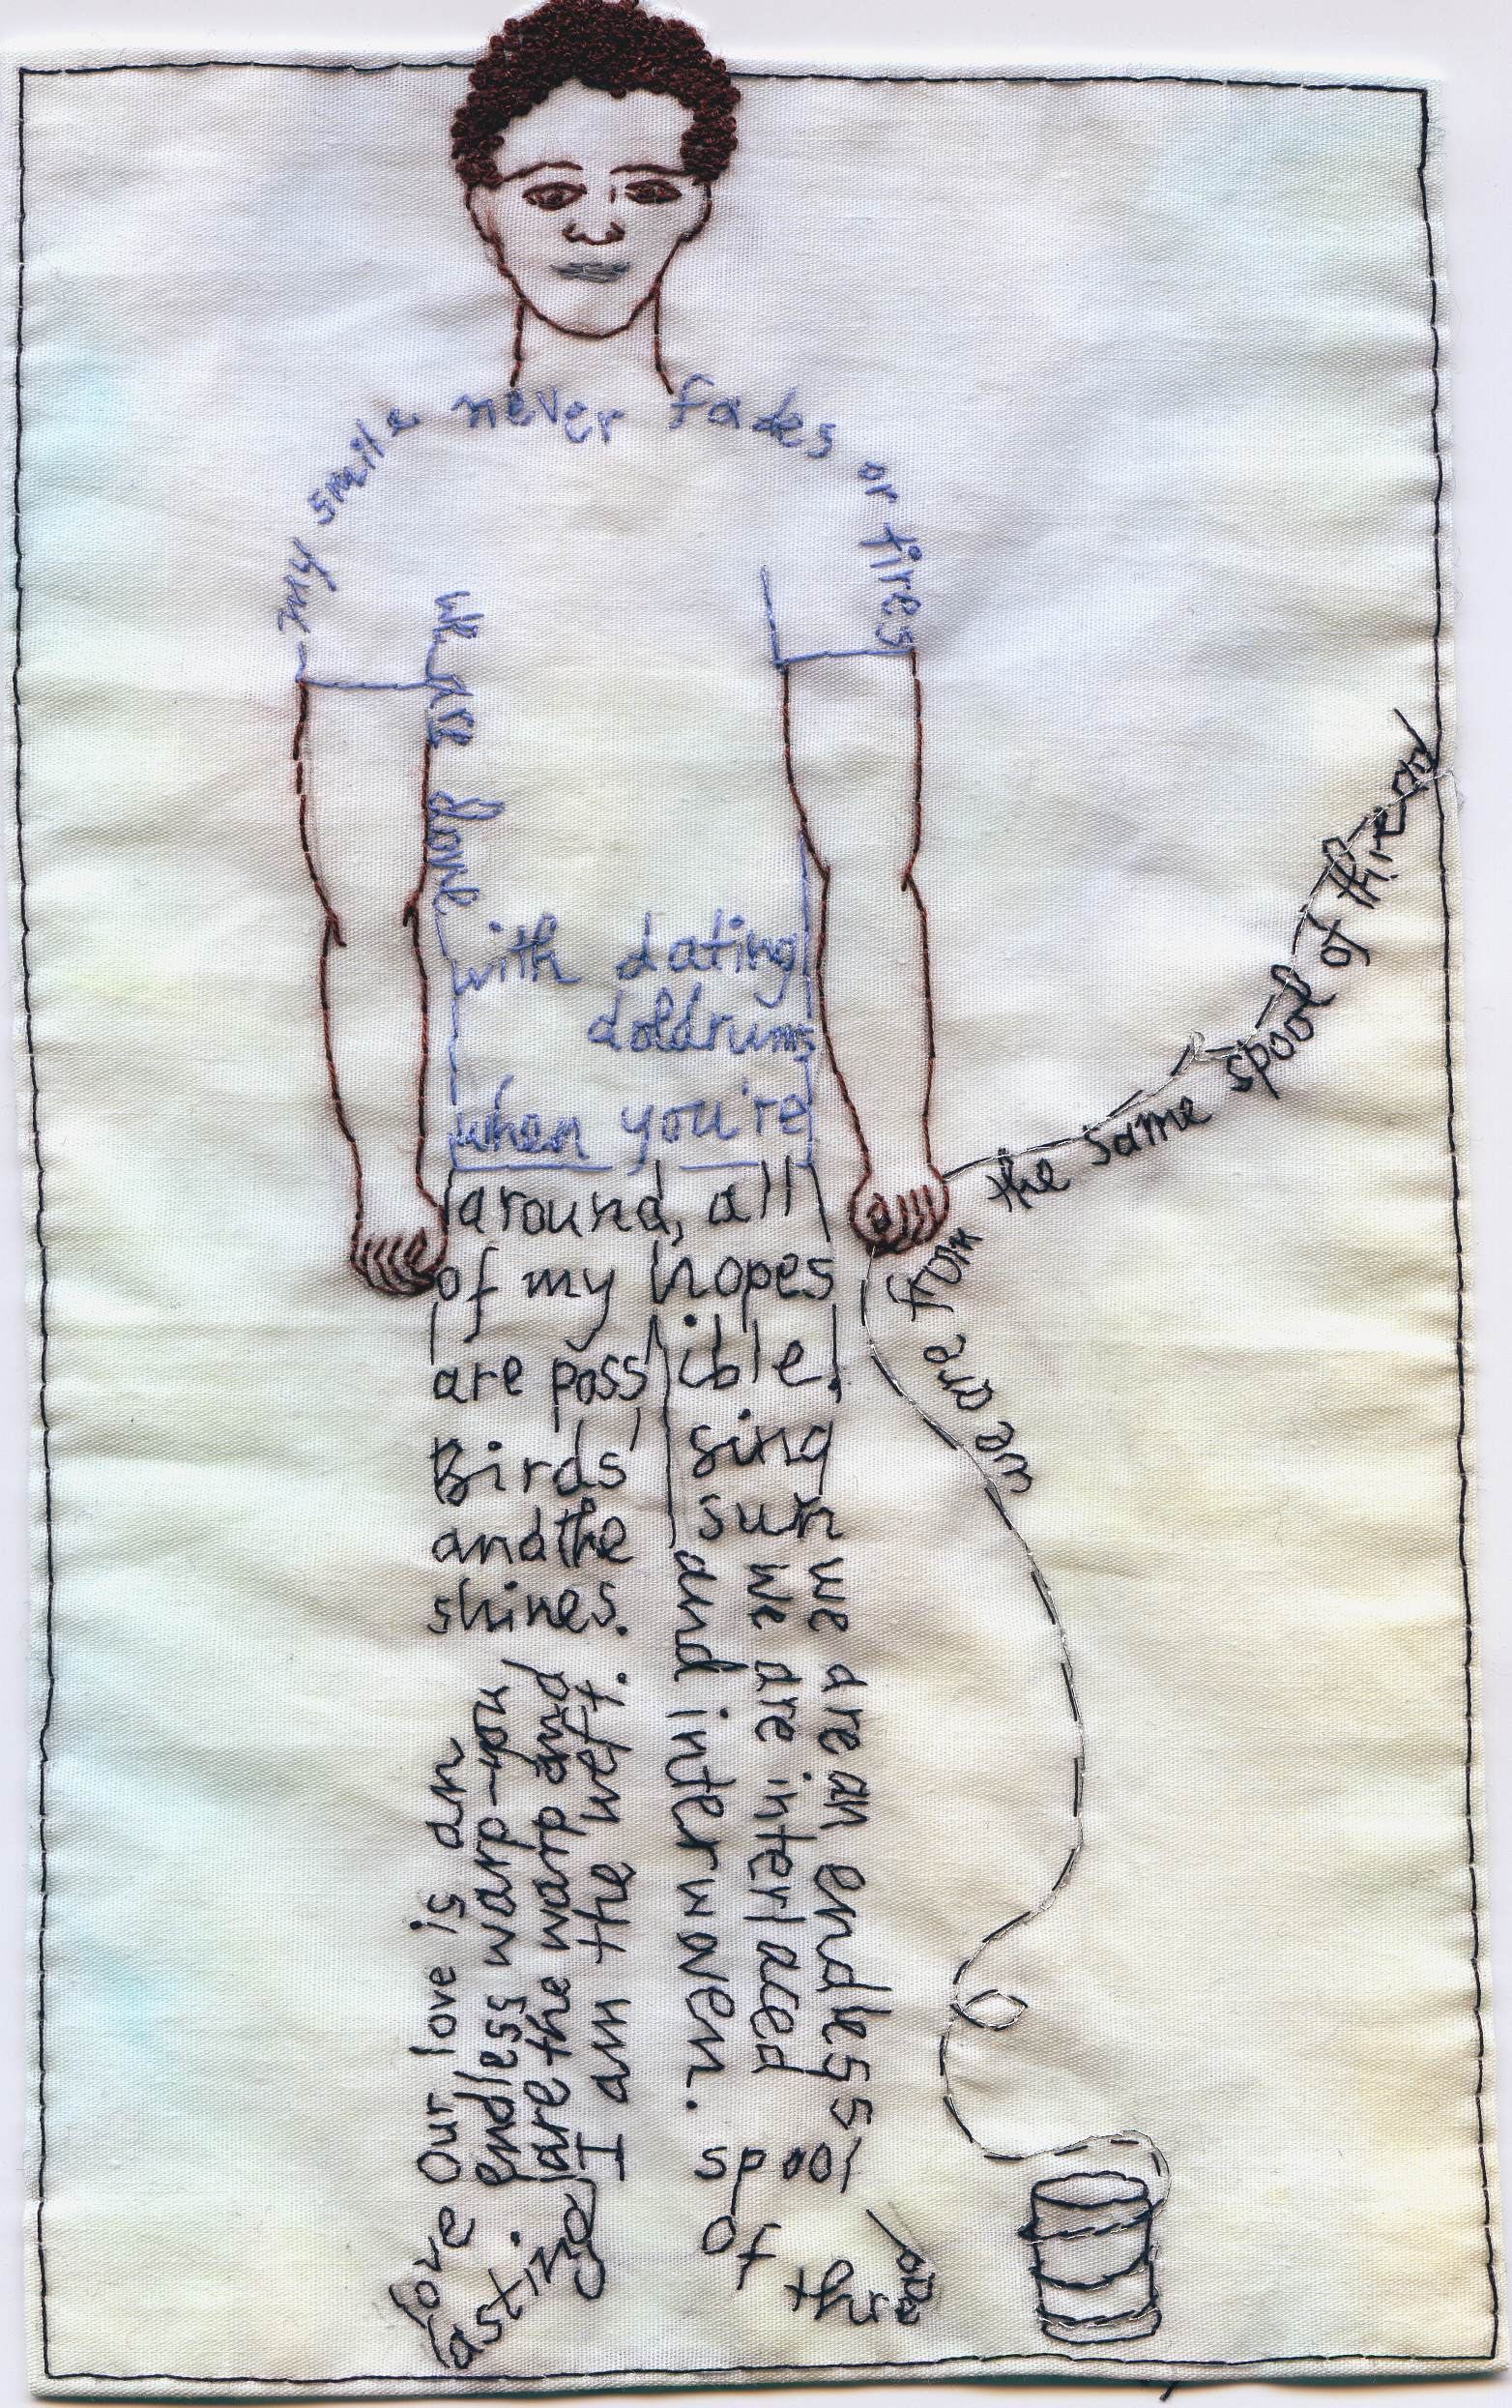 my smile never fades or tires
we are done
with dating
doldrums
when you're
around, all
of my hopes
are possible.
Birds sing
and the sun
shines.
Our love is an
endless warp-you
are the warp and
I am the weft.
love
lasting.
we are an endless
spool
of thread
we are interlaced
and interwoven.
we are from the same spool of thread